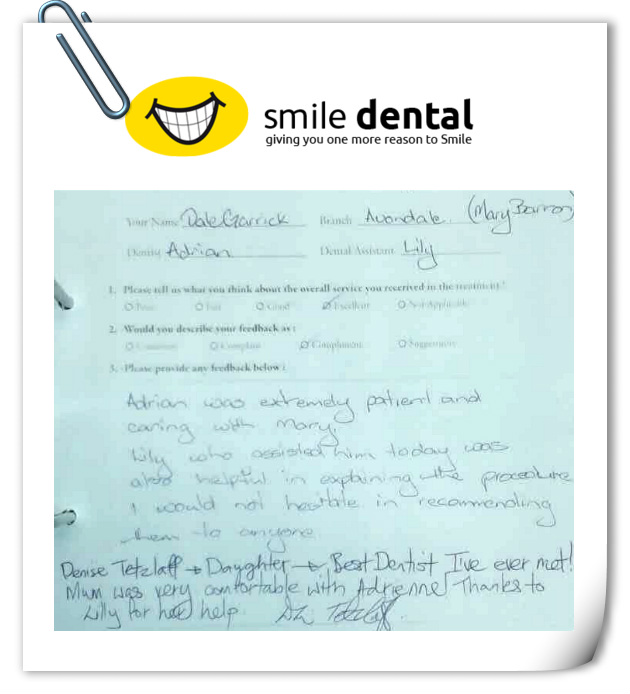 smile dental
giving you one more reason to Smile
Your Name Dale Garrick Branch Avondale. (Mary Barron)
Dentist Adrian Dental Assistant Lily
1. Please tell us what you think about the overall service you received in the treatment?
Poor Fair Good Excellent Not Applicable
2. Would you describe your feedback as :
Comment Complain Compliment Suggestion
3. Please provide any feedback below :
Adrian was extremely patient and
caring with Mary.
Lily who assisted him today was
also helpful in explaining the procedure
I would not hesitate in recommending
them to anyone.
Denise Tetzlaff → Dayghter → Best Dentist I've ever met!
Mum was very comfortable with Adrienne Thanks to
Lilly for her help. Tetzlaff